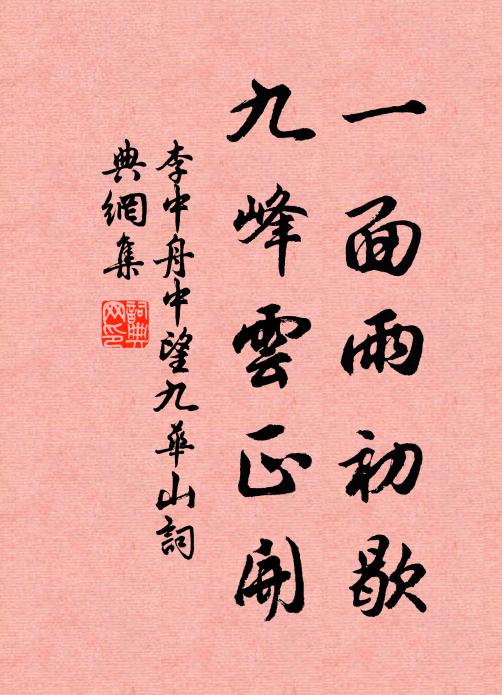 一面雨初歇
九峰雲正開
李中舟中望九華山詞
典網集
詞典网印